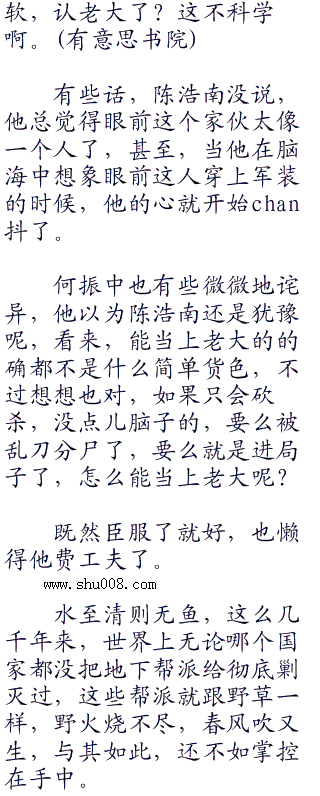 软，认老大了？这不科学
啊。(有意思书院)
有些话，陈浩南没说，
他总觉得眼前这个家伙太像
一个人了，甚至，当他在脑
海中想象眼前这人穿上军装
的时候，他的心就开始chan
抖了。
何振中也有些微微地诧
异，他以为陈浩南还是犹豫
呢，看来，能当上老大的的
确都不是什么简单货色，不
过想想也对，如果只会砍
杀，没点儿脑子的，要么被
乱刀分尸了，要么就是进局
子了，怎么能当上老大呢？
既然臣服了就好，也懒
得他费工夫了。
www.shu008.com
水至清则无鱼，这么几
千年来，世界上无论哪个国
家都没把地下帮派给彻底剿
灭过，这些帮派就跟野草一
样，野火烧不尽，春风吹又
生，与其如此，还不如掌控
在手中。